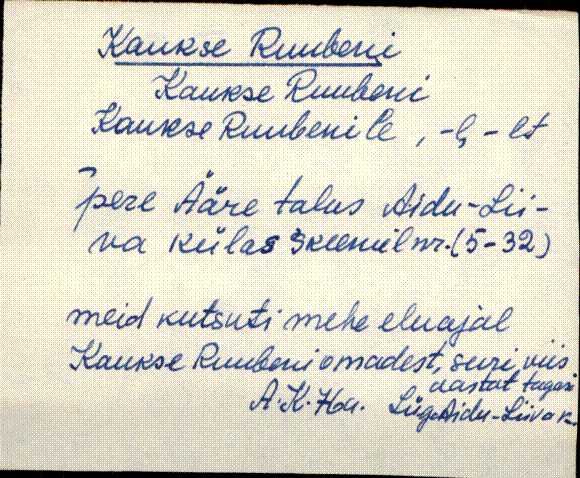 Kaukse Ruubeni
Kaukse Ruubeni
Kaukse Ruubenile, -l, -lt
pere Ääre talus Aidu-Lii-
va külas skeemil nr. (5-32)
meid kutsuti mehe eluajal
Kaukse Ruubeni omadest, suri, viis
aastat tagasi
A. K. Lüg. Aidu-Liiva k.